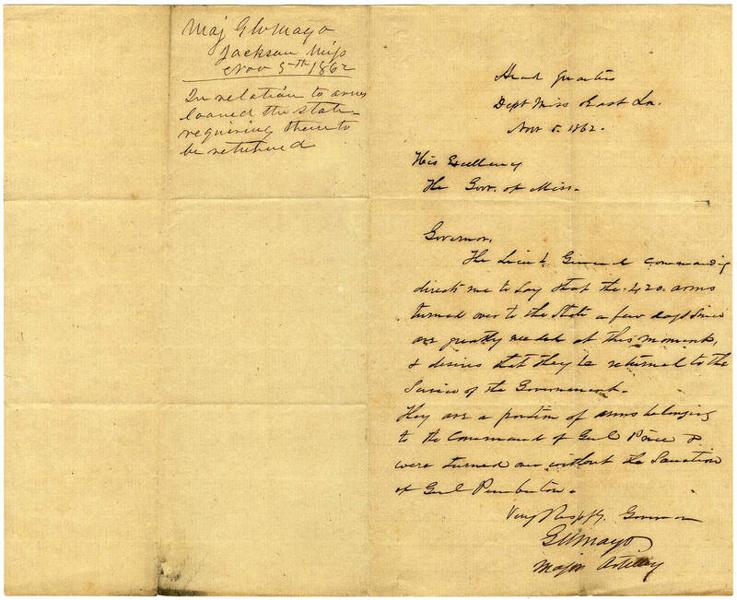 Maj G W Mayo
Jackson Miss
Nov 5th 1862
In relation to arms
loaned the state -
requiring them to
be returned
Head Quarters
Dept Miss East La.
Nov 5. 1862.
His Excellency
The Gov. of Miss.
Governor,
The Lieut. General Commanding
directs me to say that the 420 arms
turned over to the State a few days since
are greatly needed at this moment,
& desires that they be returned to the
Service of the Government.
They are a portion of arms belonging
to the Command of Genl Price &
were turned over without the Sanction
of Genl Pemberton.
Very Respfy. Governor
G W Mayo
Major Artillery